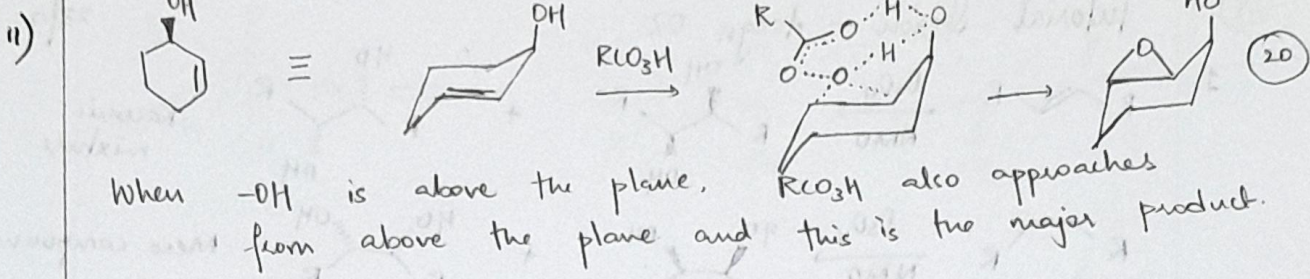 11)
OH
≡
OH
RCO3H
R
O
H
O
O
O
H
HO
O
20
When -OH is above the plane, RCO3H also approaches
from above the plane and this is the major product.